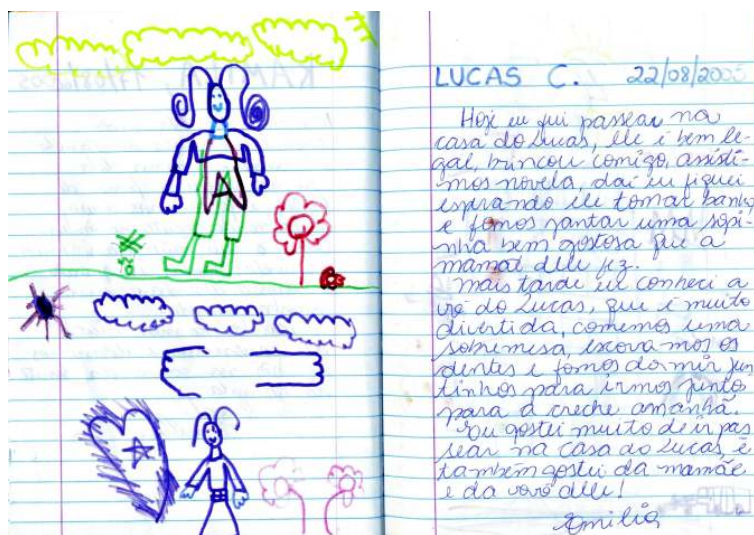 LUCAS C. 22/08/2005
Hoje eu fui passear na
casa do Lucas, ele é bem le-
gal, brincou comigo, assisti-
mos novela, daí eu fiquei
esperando ele tomar banho
e fomos jantar uma sopi-
nha bem gostosa que a
mamãe dele fez.
Mais tarde eu conheci a
vó do Lucas, que é muito
divertida, comemos uma
sobremesa, escovamos os
dentes e fomos dormir jun
tinhos para irmos junto
para a creche amanhã.
Eu gostei muito de ir pas
sear na casa do Lucas, e
também gostei da mamãe
e da vovó dele!
Emília